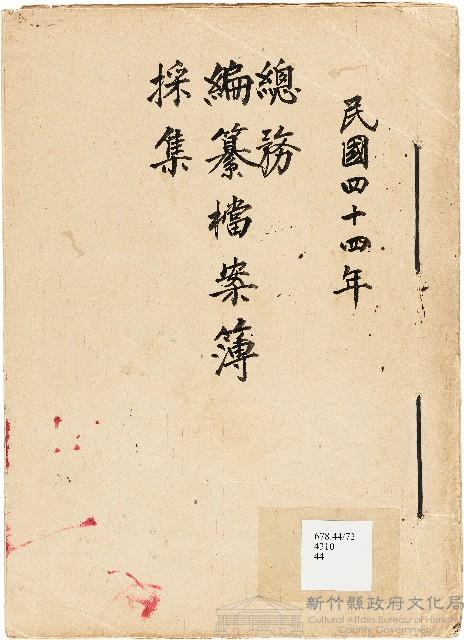 民國四十四年
總務
編纂檔案簿
採集
678.44/72
4310
44
新竹縣政府文化局
Cultural Affairs Bureau of Hsinchu
County Government